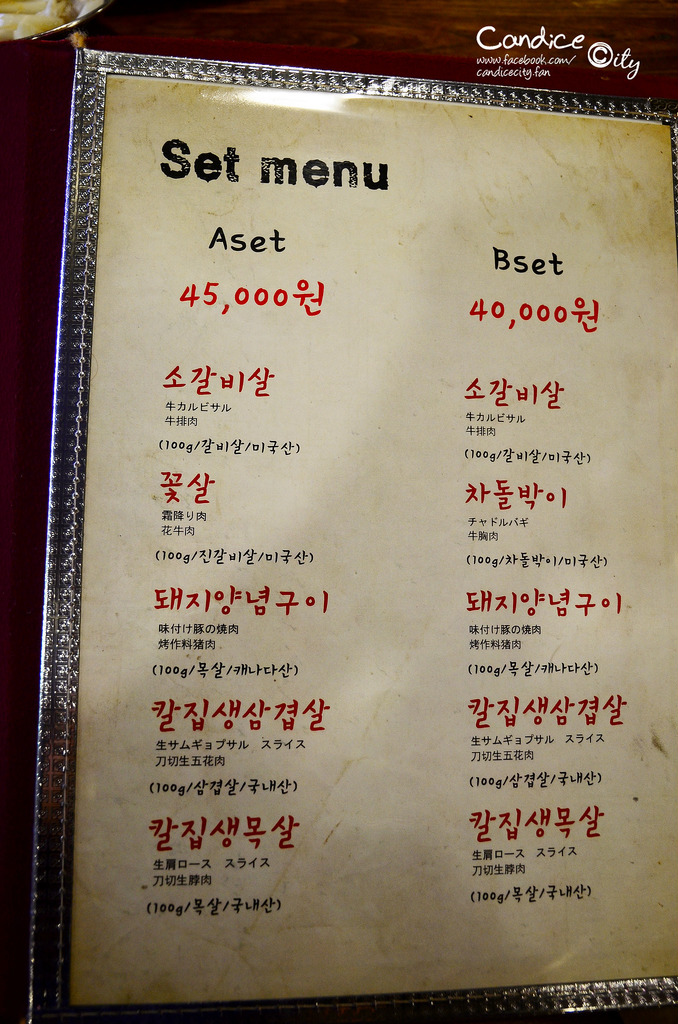 Candice City
www.facebook.com/
candicecity.fan
Set menu
Aset
45,000원
소갈비살
牛カルビサル
牛排肉
(100g/갈비살/미국산)
꽃살
霜降り肉
花牛肉
(100g/진갈비살/미국산)
돼지양념구이
味付け豚の焼肉
烤作料猪肉
(100g/목살/캐나다산)
칼집생삼겹살
生サムギョプサル スライス
刀切生五花肉
(100g/삼겹살/국내산)
칼집생목살
生肩ロース スライス
刀切生脖肉
(100g/목살/국내산)
Bset
40,000원
소갈비살
牛カルビサル
牛排肉
(100g/갈비살/미국산)
차돌박이
チャドルバギ
牛胸肉
(100g/차돌박이/미국산)
돼지양념구이
味付け豚の焼肉
烤作料猪肉
(100g/목살/캐나다산)
칼집생삼겹살
生サムギョプサル スライス
刀切生五花肉
(100g/삼겹살/국내산)
칼집생목살
生肩ロース スライス
刀切生脖肉
(100g/목살/국내산)